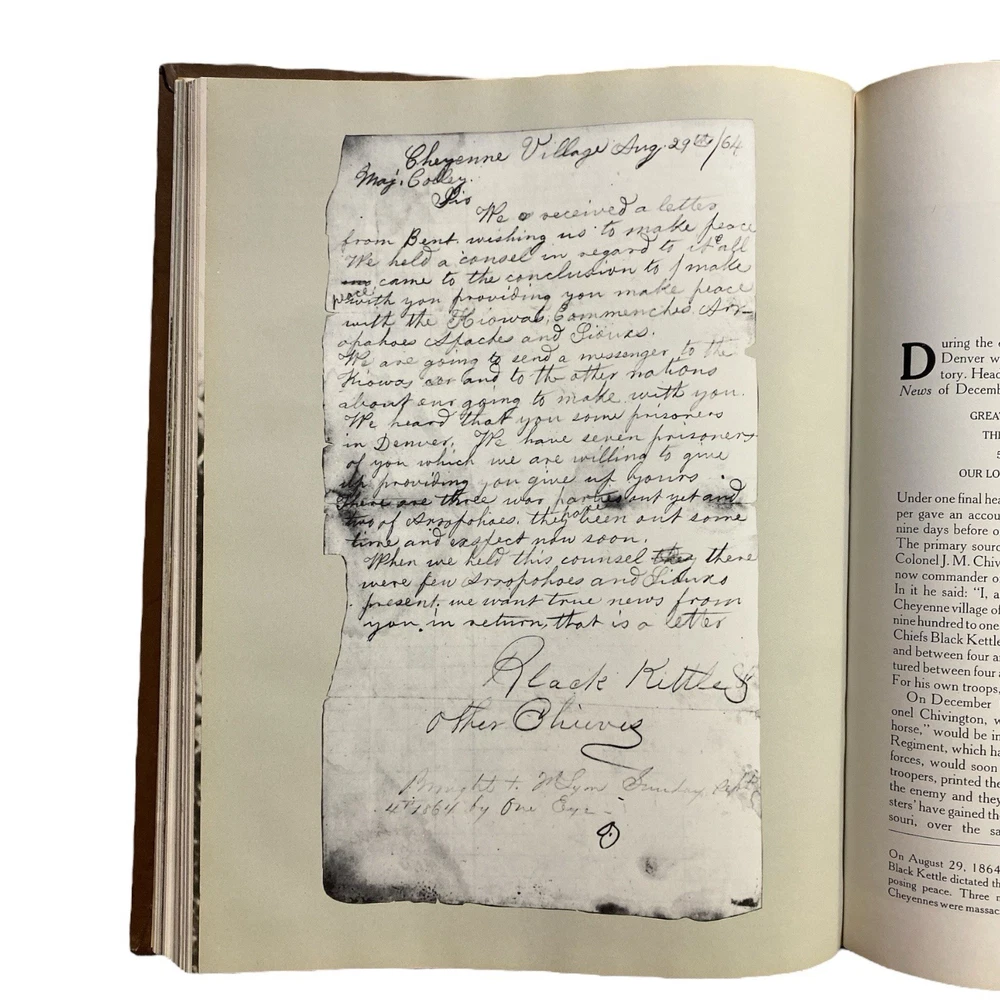 Cheyenne Village Aug. 29th/64
Maj. Colley.
Sir
We received a letter
from Bent wishing us to make peace
We held a consel in regard to it & all
came to the conclusion to make
peace with you providing you make peace
with the Kiowas, Commenches, Arr-
apahoes Apaches and Siouxs.
We are going to send a messenger to the
Kiowas and to the other nations
about our going to make with you.
We heard that you some prisoners
in Denver. We have seven prisoners
of you which we are willing to give
up providing you give up yours
There are three war parties out yet and
two of Arropohoes, they have been out some
time and exspect now soon.
When we held this counsel they there
were few Arropohoes and Siouxs
present. we want true news from
you in return, that is a letter
Black Kettle &
other Chieves
Brought to Sunday, Sept
4th 1864 by One Eye
During the
Denver w
tory. Head
News of Decemb
GREA
THE
5
OUR LO
Under one final hea
per gave an accou
nine days before o
The primary sourc
Colonel J. M. Chiv
now commander o
In it he said: "I, a
Cheyenne village of
nine hundred to one
Chiefs Black Kettle
and between four a
tured between four a
For his own troops,
On December
onel Chivington, w
horse," would be in
Regiment, which ha
forces, would soon
troopers, printed the
the enemy and they
sters' have gained th
souri, over the sa
On August 29, 1864
Black Kettle dictated th
posing peace. Three m
Cheyennes were massac